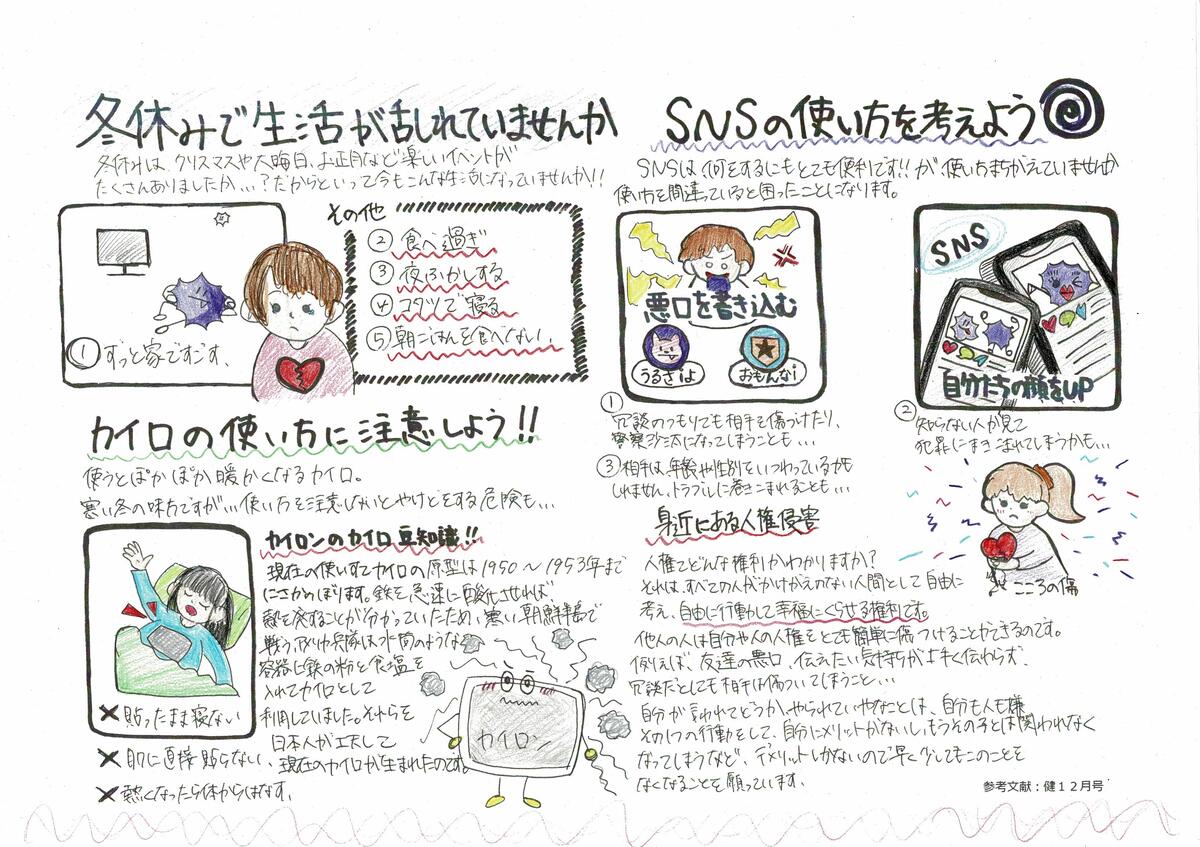 冬休みで生活が乱れていませんか
冬休みは、クリスマスや大晦日、お正月など楽しいイベントが
たくさんありましたか…?だからといって今もこんな生活になっていませんか!!
①ずっと家ですごす、
その他
②食べ過ぎ
③夜ふかしする
④コタツで寝る
⑤朝ごはんを食べない、
カイロの使い方に注意しよう!!
使うとぽかぽか暖かくなるカイロ。
寒い冬の味方ですが…使い方を注意しないとやけどをする危険も…
✕貼ったまま寝ない
✕肌に直接貼らない、
✕熱くなったら体からはなす、
カイロンのカイロ豆知識!!
現在の使いすてカイロの原型は1950〜1953年まで
にさかのぼります。鉄を急速に酸化させれば、
熱を発することが分かっていたため、寒い朝鮮半島で
戦うアメリカ兵隊は水筒のような
容器に鉄の粉と食塩を
入れてカイロとして
利用していました。それらを
日本人が工夫して
現在のカイロが生まれたのです。
カイロン
SNSの使い方を考えよう
SNSは、何をするにもとても便利です!!が、使いちまちがえていませんか
使い方を間違っていると困ったことになります。
悪口を書き込む
うるさいよ
おもんな!
①冗談のつもりでも相手を傷つけたり、
警察沙汰になってしまうことも…
SNS
自分たちの顔をUP
②知らない人が見て
犯罪にまきこまれてしまうかも…
③相手は、年齢や性別をいつわっているかも
しれません、トラブルに巻きこまれることも…
身近にある人権侵害
人権てどんな権利かわかりますか?
それは、すべての人がかけがえのない人間として自由に
考え、自由に行動して幸福にくらせる権利です。
他人の人は自分や人の人権をとても簡単に傷つけることができるのです。
例えば、友達の悪口、伝えたい気持ちが上手く伝わらず、
冗談だとしても相手は傷ついてしまうこと…
自分が言われてどうかやられていやなことは、自分も人も嫌
その1つの行動をして、自分にメリットがないし、もうその子とは関われなく
なってしまうなど、デメリットしかないので早く少しでもこのことを
なくなることを願っています。
こころの傷
参考文献:健12月号